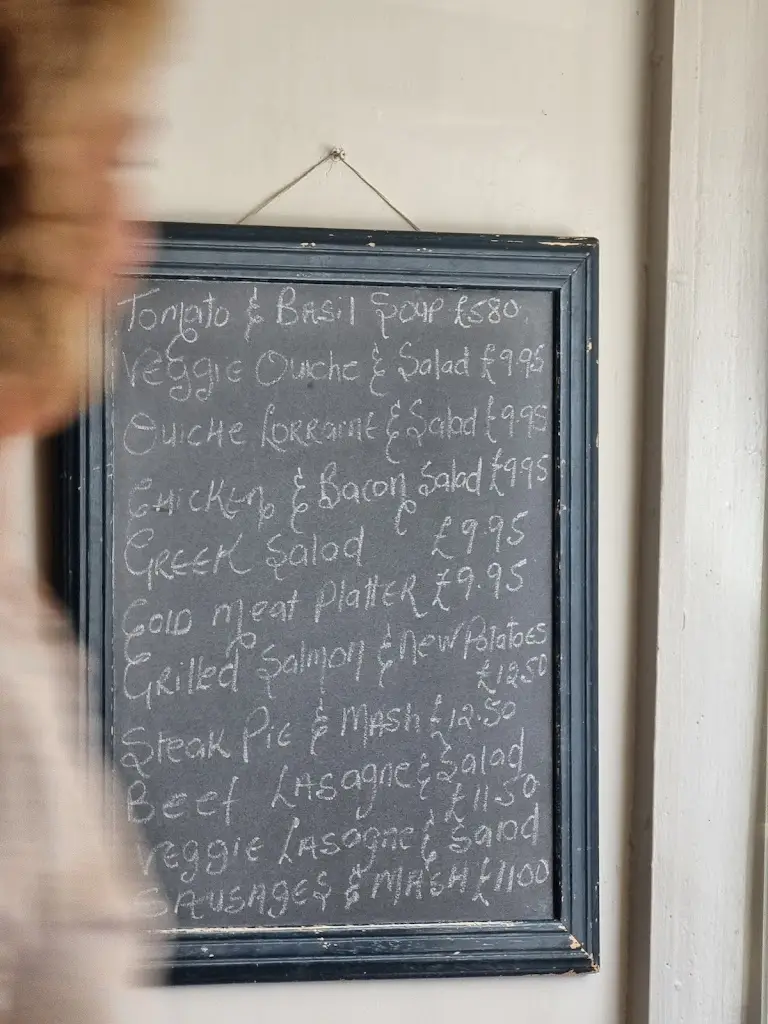 Tomato & Basil Soup £580
Veggie Quiche & Salad £9.95
Quiche Lorraine & Salad £9.95
Chicken & Bacon Salad £9.95
Greek Salad £9.95
Cold meat Platter £9.95
Grilled Salmon & New Potatoes
£12.50
Steak Pie & Mash £12.50
Beef Lasagne & Salad
£11.50
Veggie Lasagne & Salad
Sausages & Mash £1100